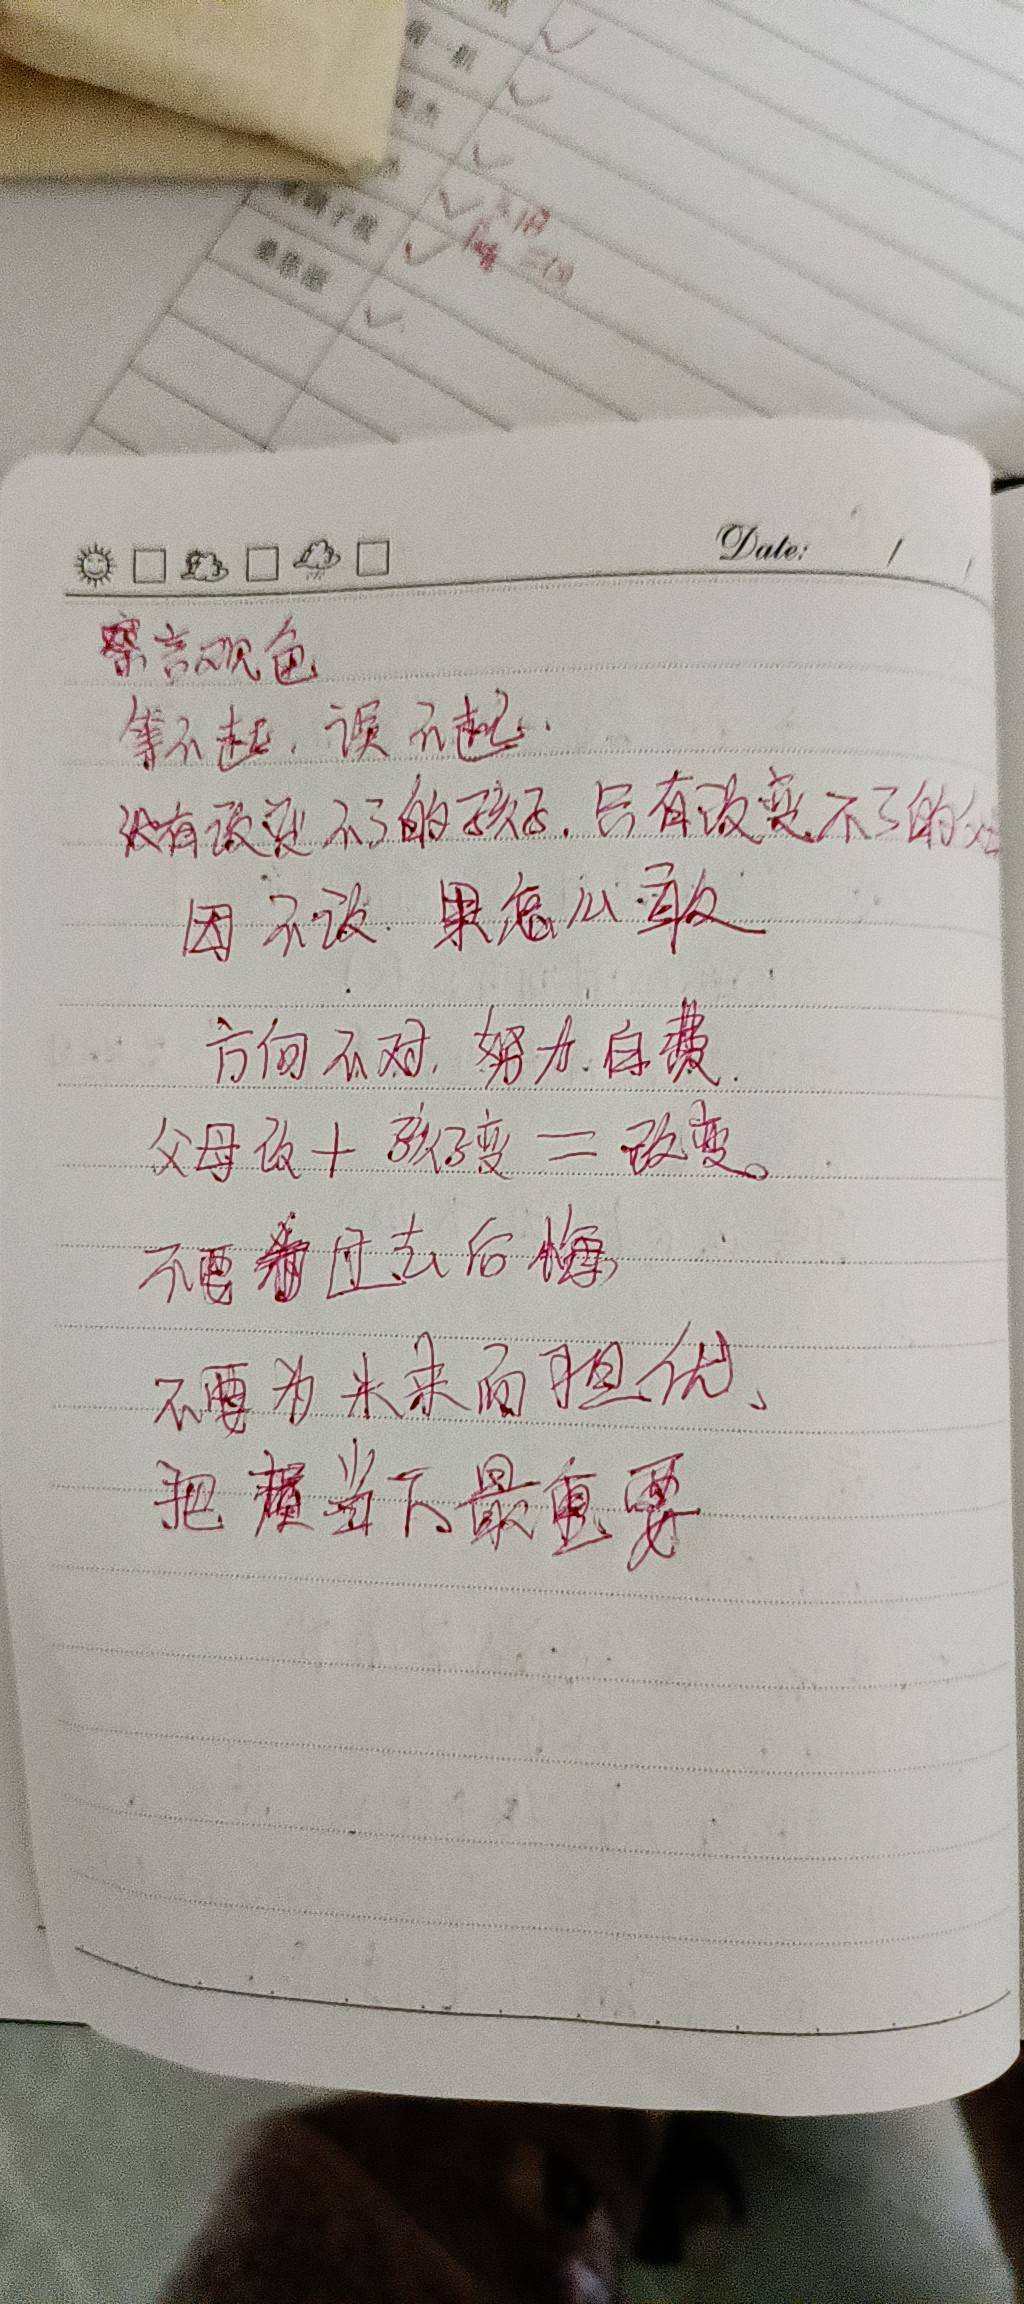 Date: / /
察言观色
等不起，误不起.
没有改变不了的孩子.只有改变不了的父
因不改.果怎么敢
方向不对,努力白费.
父母改+孩子变=改变。
不要着过去后悔
不要为未来而担优、
把握当下最重要